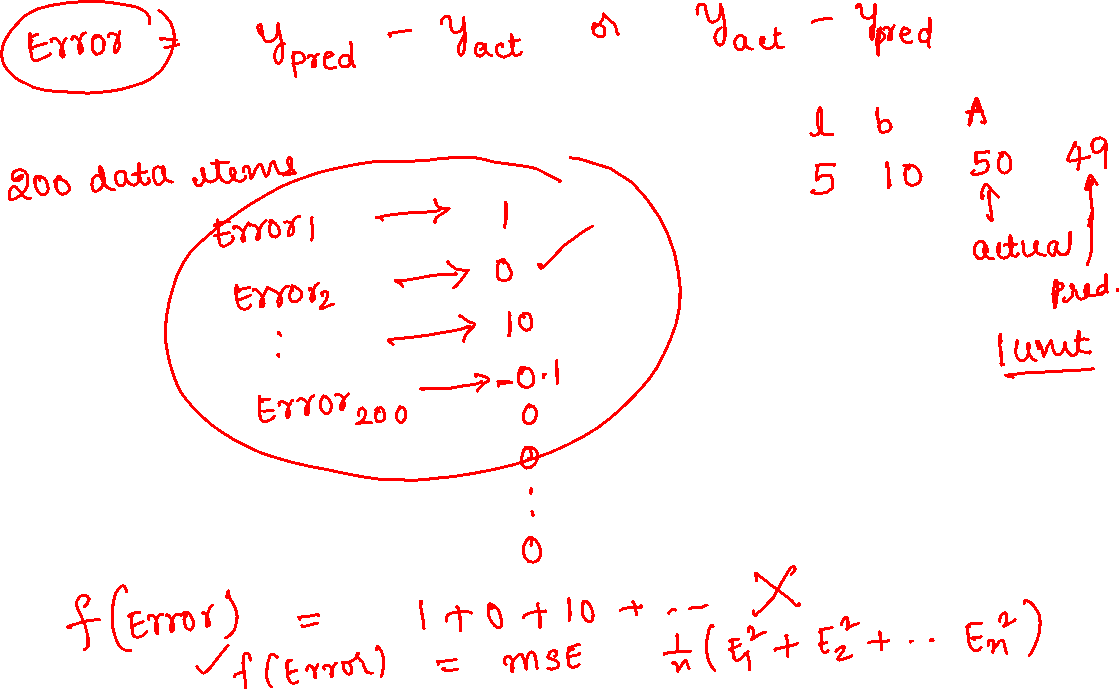 Error ⇒ y_pred - y_act or y_act - y_pred
l b A
5 10 50 49
200 data items
actual
pred.
1 unit
Error_1 → 1
Error_2 → 0 ✓
: → 10
Error_200 → -0.1
0
0
:
0
f(Error) = 1 + 0 + 10 + ... ✗
✓ f(Error) = MSE 1/n (E_1^2 + E_2^2 + ... E_n^2)